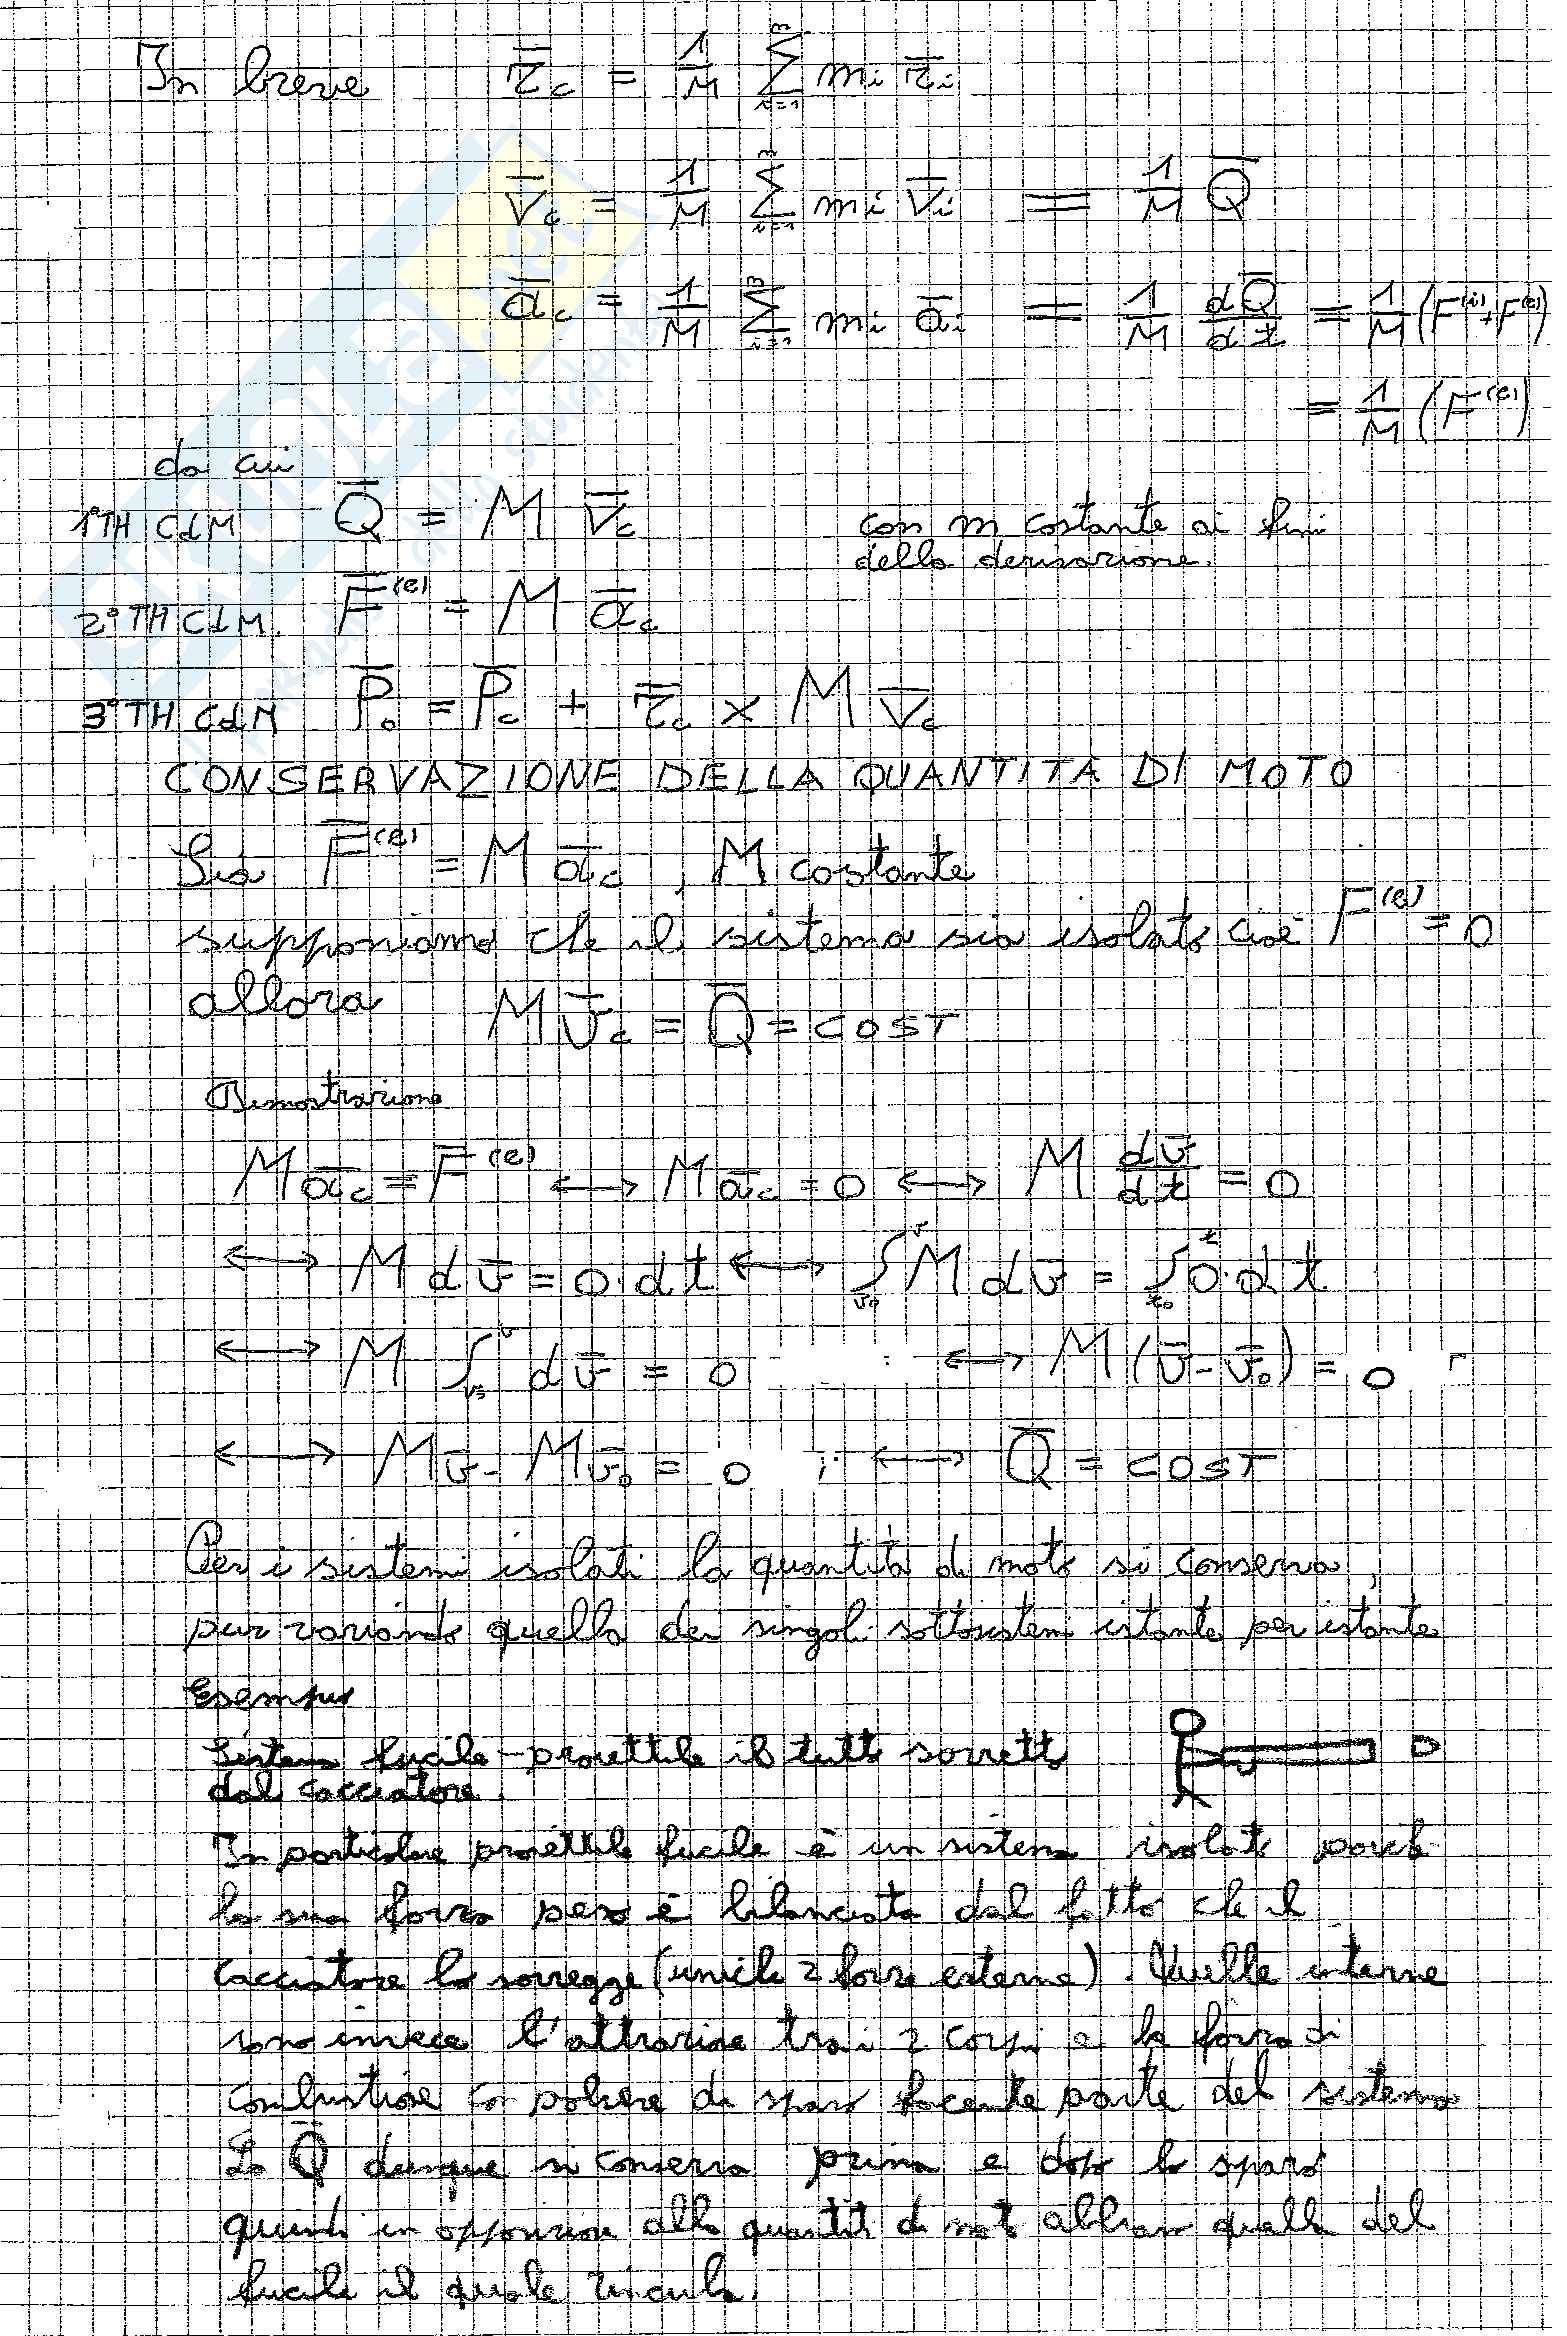 In breve r̄c = 1/M Σ(i=1→n) mi r̄i
V̄c = 1/M Σ(i=1→n) mi V̄i = 1/M Q̄
āc = 1/M Σ(i=1→n) mi āi = 1/M dQ̄/dt = 1/M (F⁽ⁱ⁾+F⁽ᵉ⁾)
= 1/M (F⁽ᵉ⁾)
da cui
1°TH CdM Q̄ = M V̄c con m costante ai fini
della derivazione.
2°TH CdM. F̄⁽ᵉ⁾ = M āc
3°TH CdM P̄o = P̄c + r̄c × M V̄c
CONSERVAZIONE DELLA QUANTITA DI MOTO
Sia F̄⁽ᵉ⁾ = M āc , M costante
supponiamo che il sistema sia isolato cioè F⁽ᵉ⁾ = 0
allora M v̄c = Q̄ = COST
Dimostrazione
M āc = F̄⁽ᵉ⁾ ↔ M āc = 0 ↔ M dv̄/dt = 0
↔ M dv̄ = 0·dt ↔ ∫(v̄0→v) M dv̄ = ∫(t0→t) 0·dt
↔ M ∫(v0→v) dv̄ = 0 ↔ M (v̄ - v̄0) = 0
↔ Mv̄ - Mv̄0 = 0 ; ↔ Q̄ = COST
Per i sistemi isolati la quantità di moto si conserva,
pur variando quella dei singoli sottosistemi istante per istante
Esempio
Sistema fucile-proiettile il tutto sorretto
dal cacciatore.
In particolare proiettile fucile è un sistema isolato poiché
la sua forza peso è bilanciata dal fatto che il
cacciatore lo sorregge (uniche 2 forze esterne). Quelle interne
sono invece l'attrazione tra i 2 corpi e la forza di
combustione con polvere da sparo facente parte del sistema
La Q̄ dunque si conserva prima e dopo lo sparo
quindi in opposizione alla quantità di moto abbiamo quella del
fucile il quale rincula.